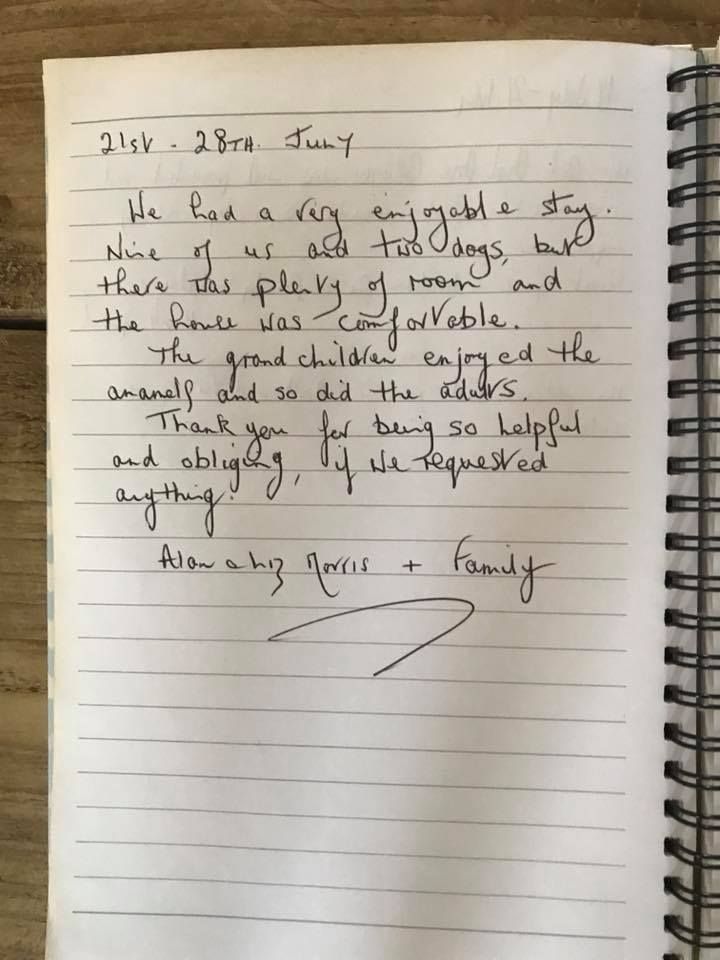 21st - 28TH. July
We had a very enjoyable stay.
Nine of us and two dogs, but
there was plenty of room and
the house was comfortable.
The grandchildren enjoyed the
and so did the adults.
Thank you for being so helpful
and obliging, if we requested
anything.
Alan & Liz Morris + Family